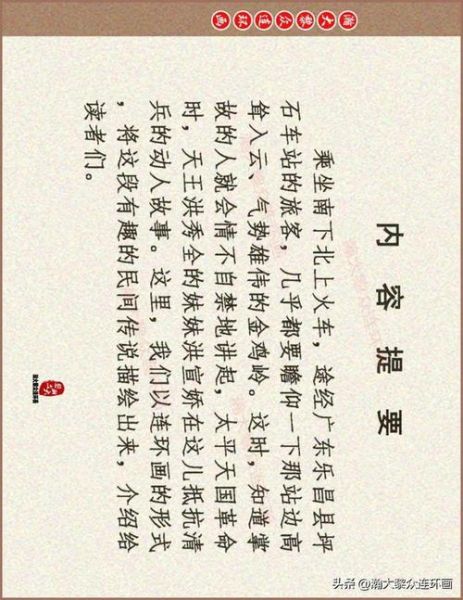 瀚大黎众连环画
内容提要
乘坐南下北上火车，途经广东乐昌县坪
石车站的旅客，几乎都要瞻仰一下那站边高
耸入云、气势雄伟的金鸡岭。这时，知道掌
故的人就会情不自禁地讲起，太平天国革命
时，天王洪秀全的妹妹洪宣娇在这儿抵抗清
兵的动人故事。这里，我们以连环画的形式
，将这段有趣的民间传说描绘出来，介绍给
读者们。
头条 @瀚大黎众连环画